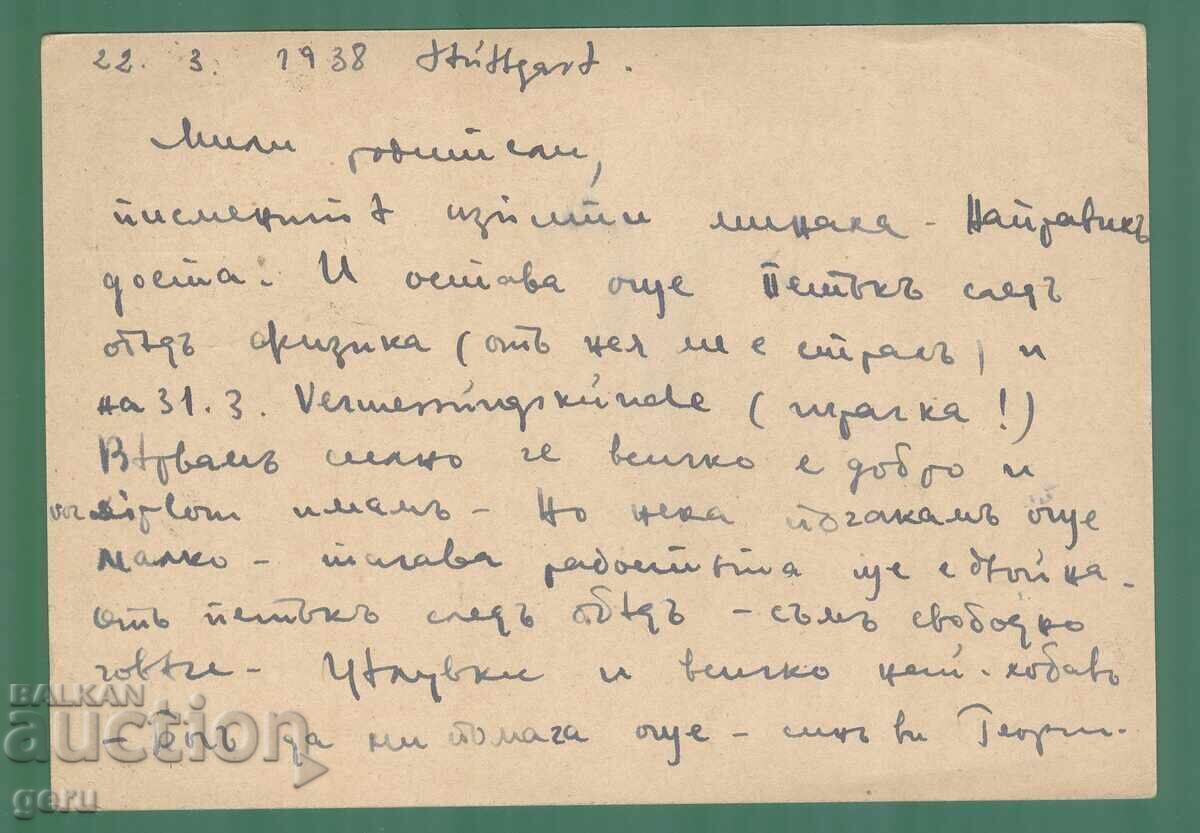 22. 3. 1938 Stuttgart.
Мили родители,
писменитѣ изпити минаха - Направихъ
доста. И остава още Петъкъ следъ
обѣдъ физика (отъ нея ме е страхъ) и
на 31.3. Vermessungskunde (играчка!)
Вѣрвамъ силно че всичко е добро и
vordiplom имамъ - Но нека почакамъ още
малко - тогава радостьта ще е двойна.
отъ петъкъ следъ обѣдъ - съмъ свободно
човѣче - Цѣлувки и всичко най-хубаво
- Богъ да ни помага още - синъ ви Георги.
BALKAN
auction
geru